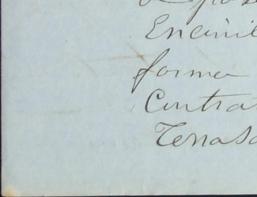 Encinil
forma
Contra
Terrasa